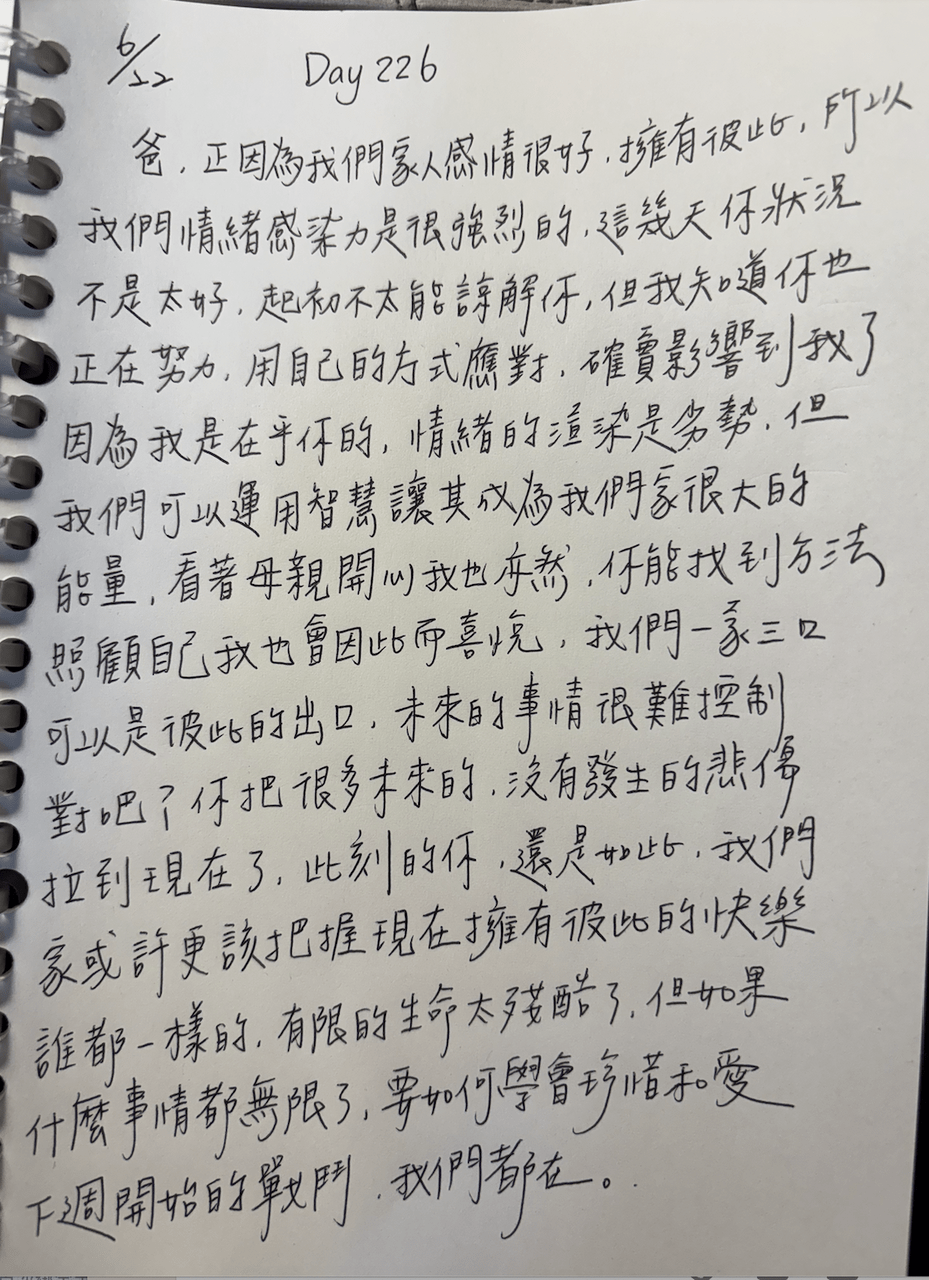 6/22 Day 226
爸，正因為我們家人感情很好，擁有彼此，所以
我們情緒感染力是很強烈的，這幾天你狀況
不是太好，起初不太能諒解你，但我知道你也
正在努力，用自己的方式應對，確實影響到我了
因為我是在乎你的，情緒的渲染是劣勢，但
我們可以運用智慧讓其成為我們家很大的
能量，看著母親開心我也亦然，你能找到方法
照顧自己我也會因此而喜悅，我們一家三口
可以是彼此的出口，未來的事情很難控制
對吧？你把很多未來的，沒有發生的悲傷
拉到現在了，此刻的你，還是如此，我們
家或許更該把握現在擁有彼此的快樂
誰都一樣的，有限的生命太殘酷了，但如果
什麼事情都無限了，要如何學會珍惜和愛
下週開始的戰鬥，我們都在。